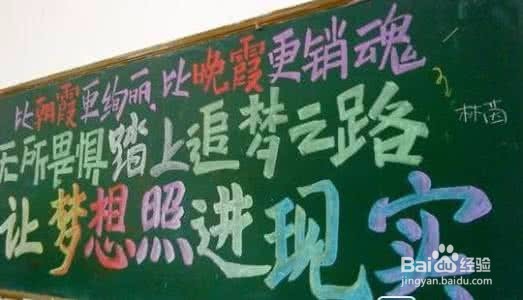 比朝霞更绚丽，比晚霞更销魂
无所畏惧踏上追梦之路
林茵
让梦想照进现实
Baidu 经验
jingyan.baidu.com